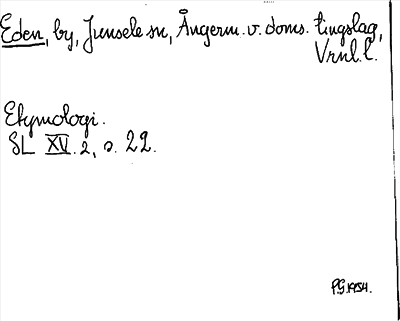 Eden, by, Junsele sn, Ångerm. v. doms. tingslag,
Vrnl. l.
Etymologi.
SL XV. 2, s. 22.
P.G. 1954.